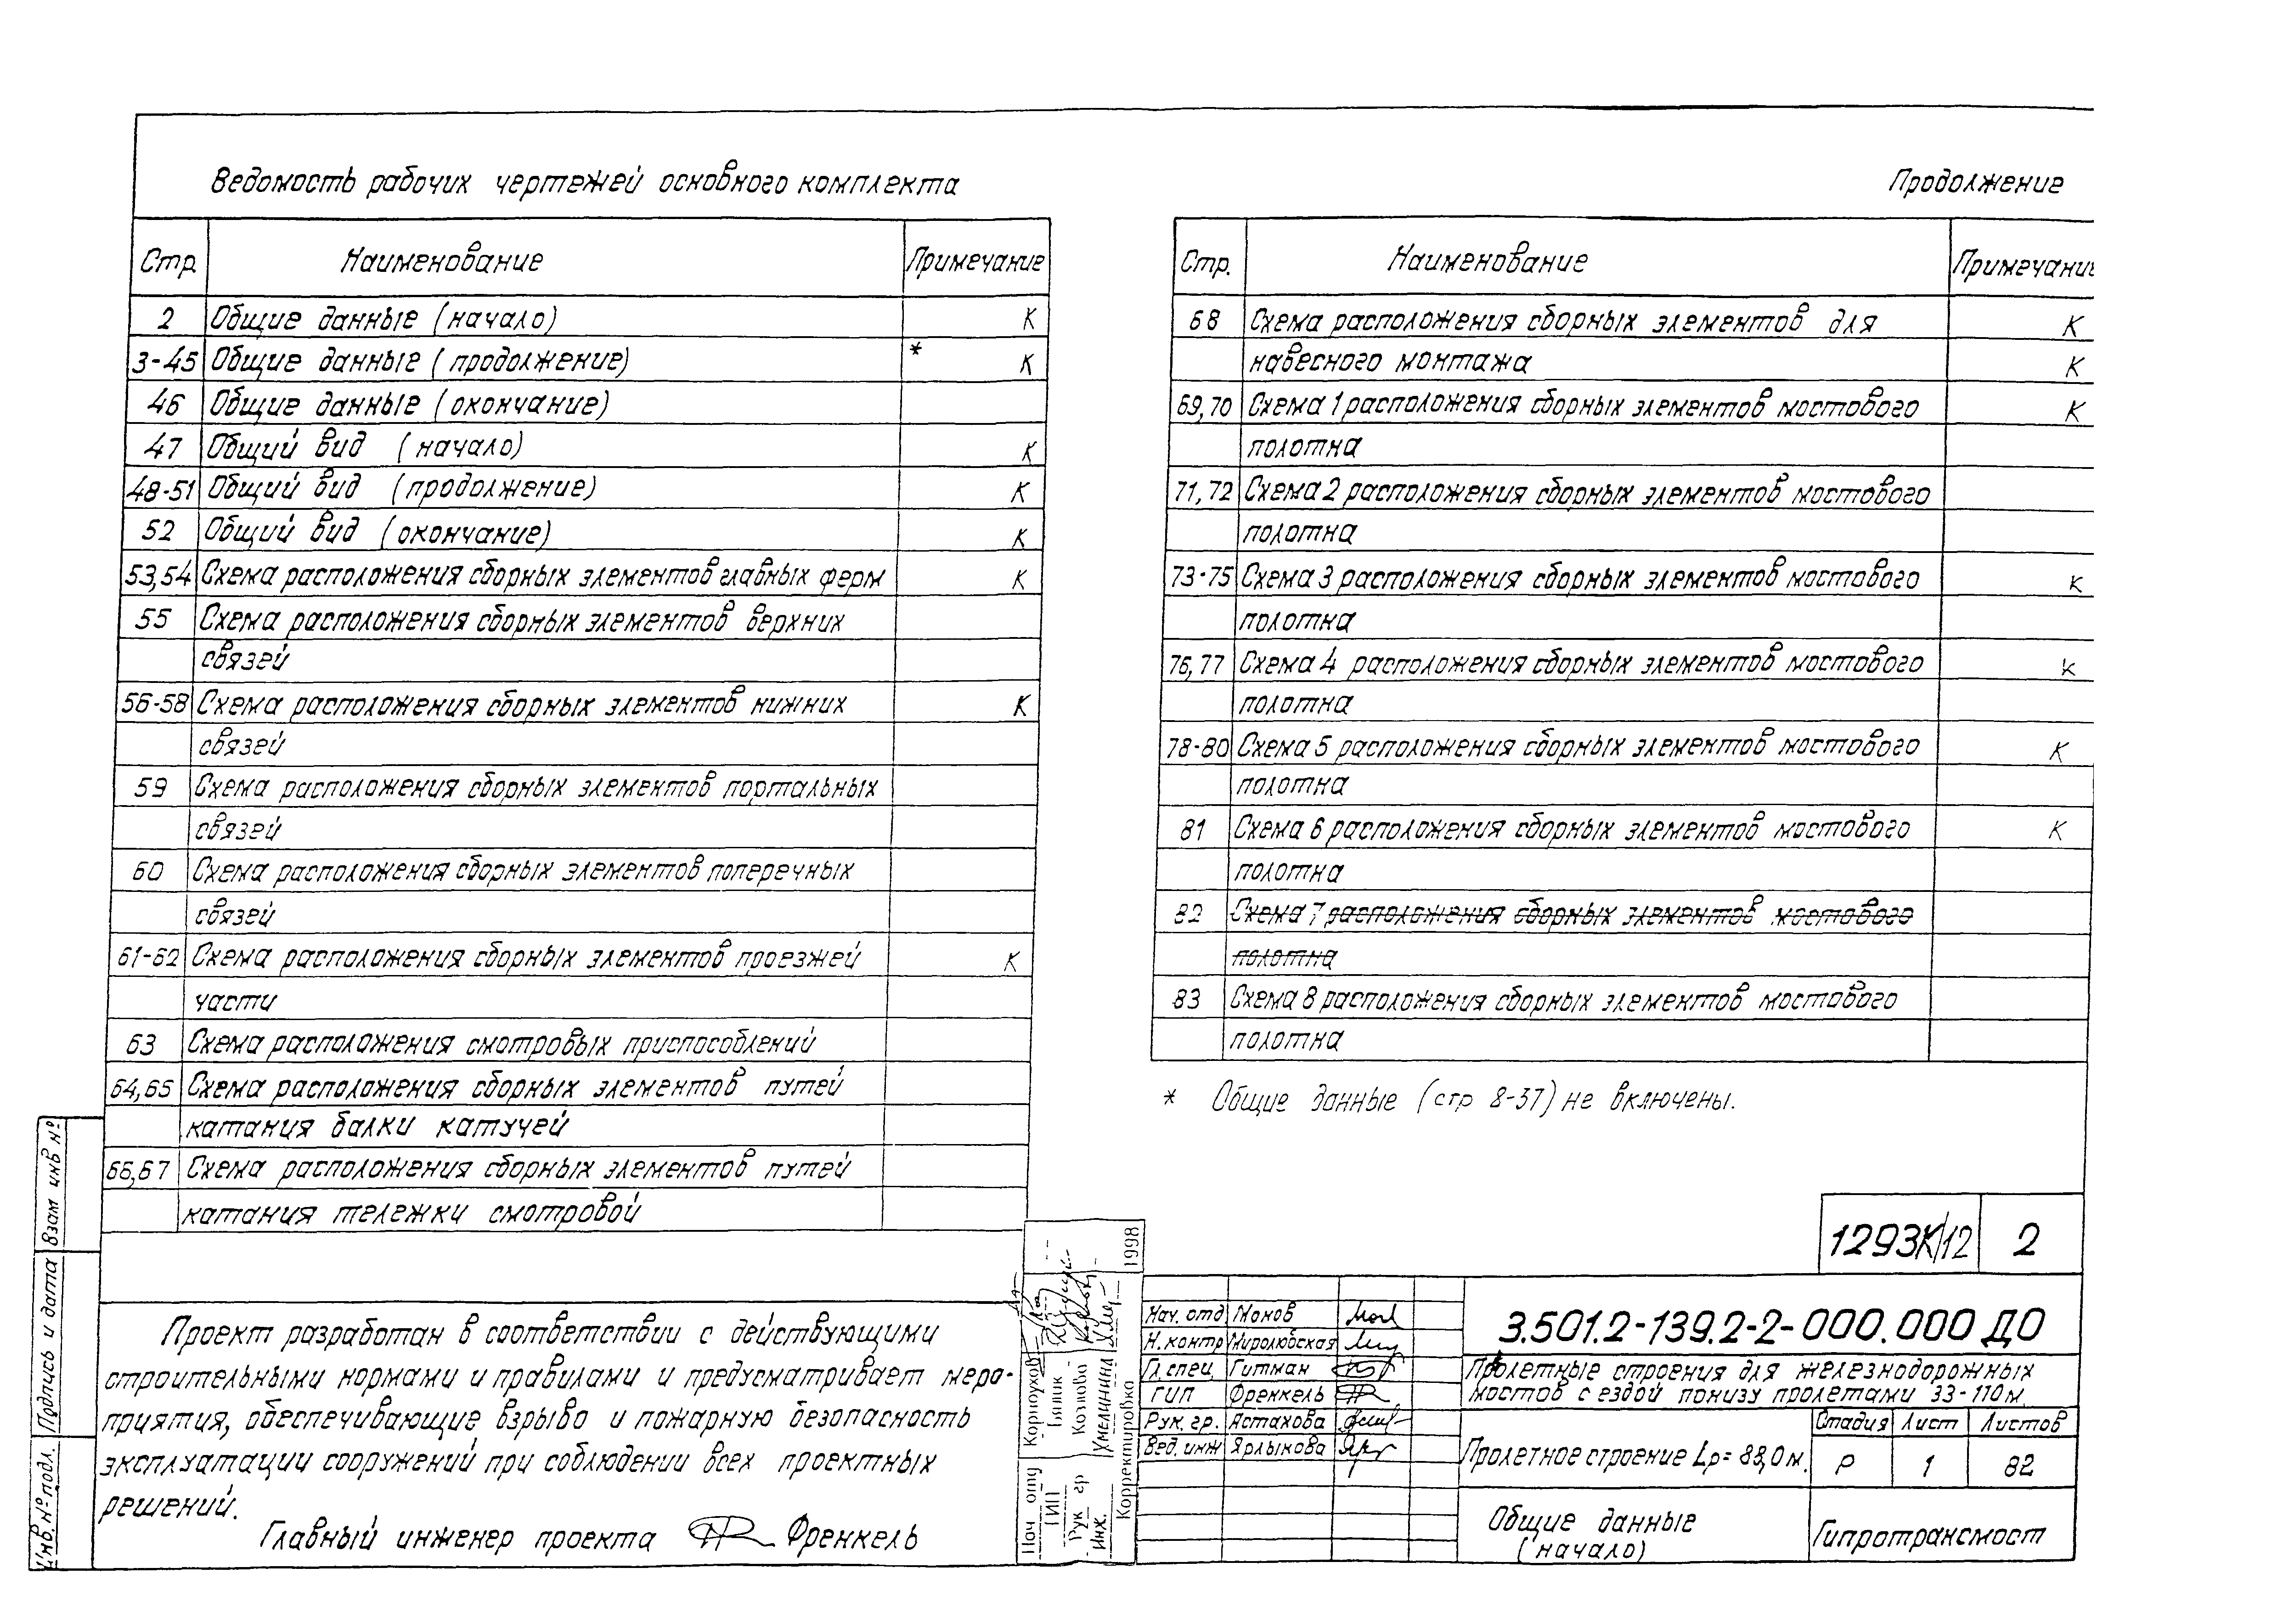 Ведомость рабочих чертежей основного комплекта
Стр. Наименование Примечание
2 Общие данные (начало) К
3-45 Общие данные (продолжение) * К
46 Общие данные (окончание)
47 Общий вид (начало) К
48-51 Общий вид (продолжение) К
52 Общий вид (окончание) К
53,54 Схема расположения сборных элементов главных ферм К
55 Схема расположения сборных элементов верхних
связей
56-58 Схема расположения сборных элементов нижних К
связей
59 Схема расположения сборных элементов портальных
связей
60 Схема расположения сборных элементов поперечных
связей
61-62 Схема расположения сборных элементов проезжей К
части
63 Схема расположения смотровых приспособлений
64,65 Схема расположения сборных элементов путей
катания балки катучей
66,67 Схема расположения сборных элементов путей
катания тележки смотровой
Продолжение
Стр. Наименование Примечание
68 Схема расположения сборных элементов для К
навесного монтажа К
69,70 Схема 1 расположения сборных элементов мостового К
полотна
71,72 Схема 2 расположения сборных элементов мостового
полотна
73-75 Схема 3 расположения сборных элементов мостового К
полотна
76,77 Схема 4 расположения сборных элементов мостового К
полотна
78-80 Схема 5 расположения сборных элементов мостового К
полотна
81 Схема 6 расположения сборных элементов мостового К
полотна
82 Схема 7 расположения сборных элементов мостового
полотна
83 Схема 8 расположения сборных элементов мостового
полотна
* Общие данные (стр 8-37) не включены.
Проект разработан в соответствии с действующими
строительными нормами и правилами и предусматривает меро-
приятия, обеспечивающие взрыво и пожарную безопасность
эксплуатации сооружений при соблюдении всех проектных
решений.
Главный инженер проекта Френкель
Взам инв №
Подпись и дата
Инв. № подл.
Нач отд Корноухов
ГИП
Рук гр Козлова
Инж. Умелинина
Корректировка 1998
1293К/12 2
Нач. отд Монов
Н.контр Миролюбская
Гл. спец. Гитман
ГИП Френкель
Рук. гр. Астахова
Вед. инж Ярлыкова
3.501.2-139.2-2-000.000 ДО
Пролетные строения для железнодорожных
мостов с ездой понизу пролетами 33-110 м.
Пролетное строение Lр= 88,0 м.
Стадия Лист Листов
Р 1 82
Общие данные
(начало)
Гипротрансмост